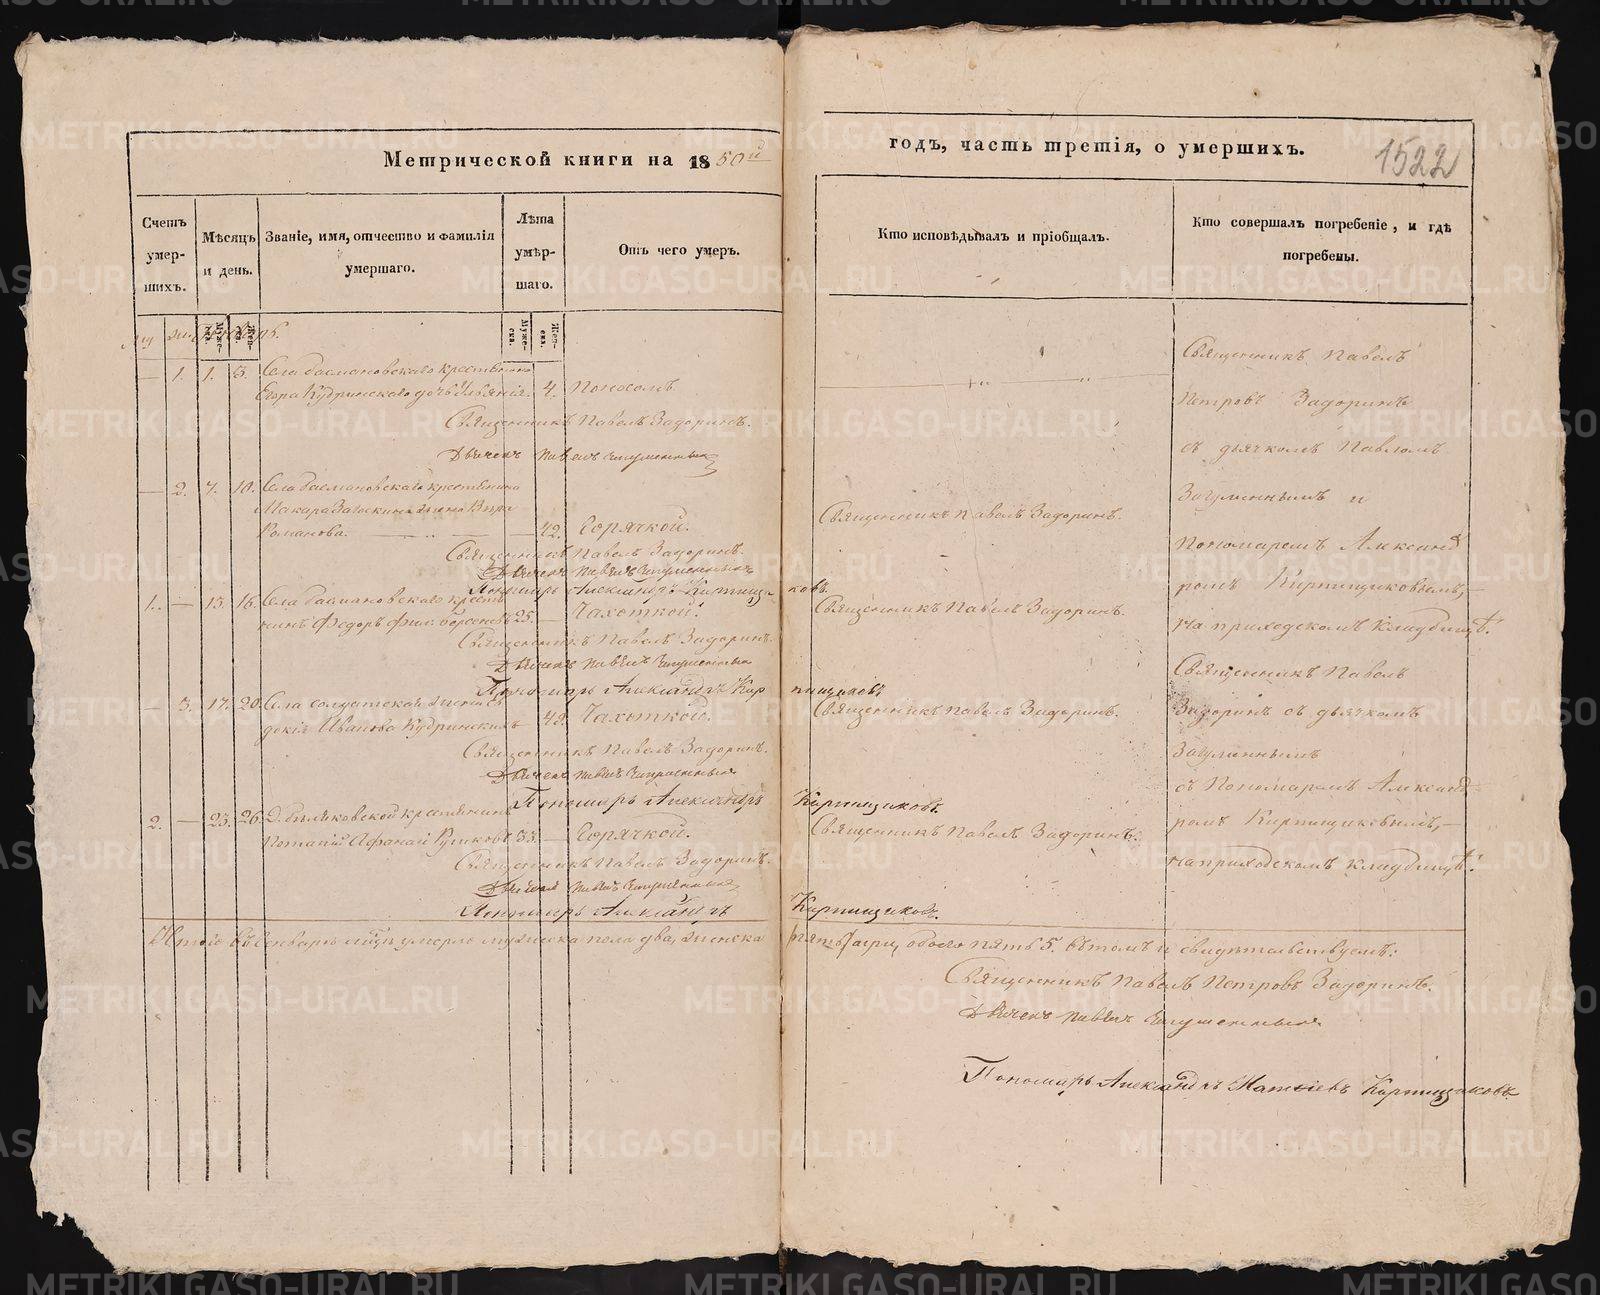 Метрической книги на 1850й
годъ, часть третія, о умершихъ.
1522
Счетъ умер- шихъ.
Мѣсяцъ и день.
Званіе, имя, отчество и фамилія умершаго.
Лѣта умѣр- шаго.
Отъ чего умеръ.
Кто исповѣдывалъ и пріобщалъ.
Кто совершалъ погребеніе, и гдѣ погребены.
Муже- ска.
Жен- ска.
Муже- ска.
Жен- ска.
— 1. 1. 3. Села Басмановскаго крестьянина
Егора Кудринскаго дочь Ульянія. 4. Поносомъ
Священникъ Павелъ Задоринъ.
Дьячекъ Павелъ
— 2. 7. 10. Села Басмановскаго крестьянина
Макара жена Вѣра
Романова. — 42. Горячкой.
Священникъ Павелъ Задоринъ.
Священникъ Павелъ Задоринъ.
Дьячекъ Павелъ
Пономарь Александръ Кирпищи- ковъ.
1. — 13. 16. Села Басмановскаго кресть
нинъ Федоръ 25. — Чахоткой.
Священникъ Павелъ Задоринъ.
Священникъ Павелъ Задоринъ.
Дьячекъ Павелъ
Пономарь Александръ Кир пищиковъ
— 3. 17. 20. Села солдатская жена Ев
докія Иванова Кудринскихъ 42. Чахоткой.
Священникъ Павелъ Задоринъ.
Священникъ Павелъ Задоринъ.
Дьячекъ Павелъ
Пономарь Александръ Кирпищиковъ.
2. — 23. 26. Д. крестьянинъ
33. — Горячкой.
Священникъ Павелъ Задоринъ.
Священникъ Павелъ Задоринъ.
Дьячекъ Павелъ
Пономарь Александръ Кирпищиковъ.
Священникъ Павелъ
Петровъ Задоринъ
съ дьячкомъ Павломъ
и
Пономаремъ Александ
ромъ Кирпищиковымъ,—
на приходскомъ кладбищѣ.
Священникъ Павелъ
Задоринъ съ дьячкомъ
съ Пономаремъ Александ
ромъ Кирпищиковымъ,—
на приходскомъ кладбищѣ.
умерло мужеска пола два, женска
три, обоего пять 5. вѣтомъ и свидѣтельствуемъ:
Священникъ Павелъ Петровъ Задоринъ.
Дьячекъ Павелъ
Пономарь Александръ Матѳіевъ Кирпищиковъ.
METRIKI.GASO-URAL.RU